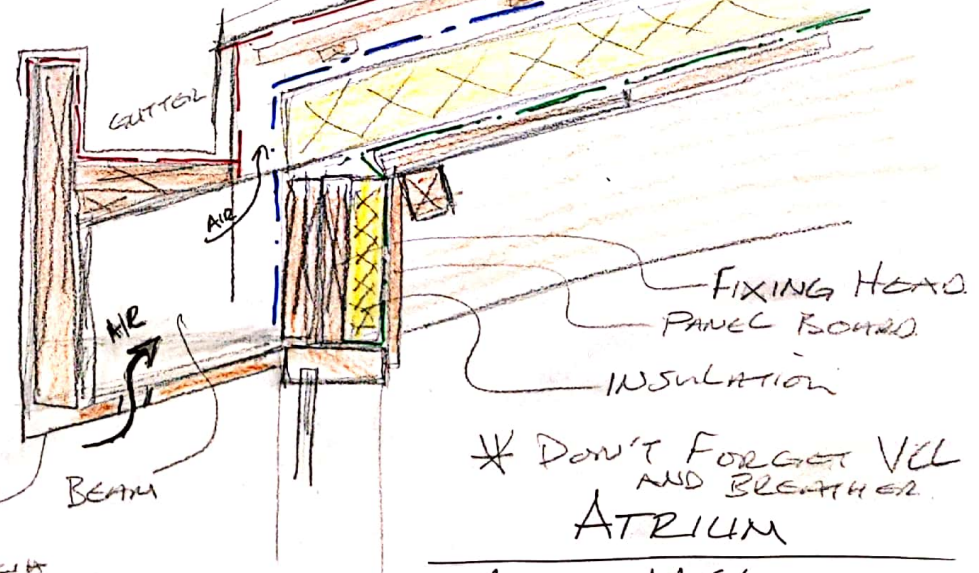 GUTTER
AIR
AIR
FIXING HEAD.
PANEL BOARD
INSULATION
BEAM
* DON'T FORGET VCL
AND BREATHER.
ATRIUM